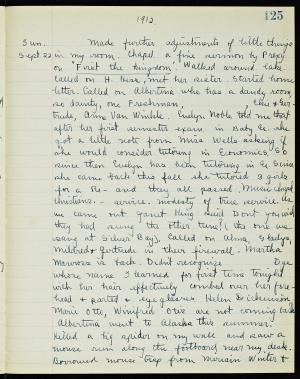 1912.
125
Sun. Made further adjustments of little things
Sept. 22 in my room. Chapel a fine sermon by Prexy
on "First the kingdom". Walked around lake.
Called on H. Hess, met her sister. Started home
letter. Called on Albertina who has a dandy room,
so dainty, one Freshman, Ger-
trude, Anna Van Winkle. Evelyn Noble told me that
after her first semester exam in Baby Ec. she
got a little note from Miss Wells asking if
she would consider tutoring in Economics. So
since then Evelyn has been tutoring in Ec. Since
she came back this fall she tutored 3 girls
for a Re- and they all passed. Music
Christians. - service. modesty of true service. As
we came out Janet King said "Don't you wish
they had sung the other tune?" (the one we
sang at Silver Bay). Called on Alma, Gladys,
Mildred & Gertrude in their firewall. Martha
is back. Didn't recognize Dye
whose name I learned for first time tonight
with her hair effectively combed over her fore-
head & parted & eye glasses. Helen Dickinson
Marie Otto, Winifred are not coming back.
Albertina went to Alaska this summer.
Killed a big spider on my wall and saw a
mouse run along the footboard near my desk.
Borrowed mouse trap from Miriam Winter &